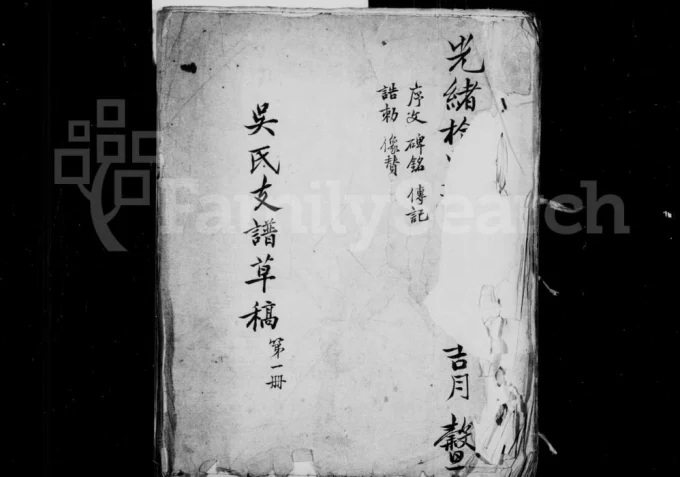 光緒拾
吉月 穀旦
序文 碑銘 傳記
誥勅 像贊
吳氏支譜草稿 第一冊
FamilySearch